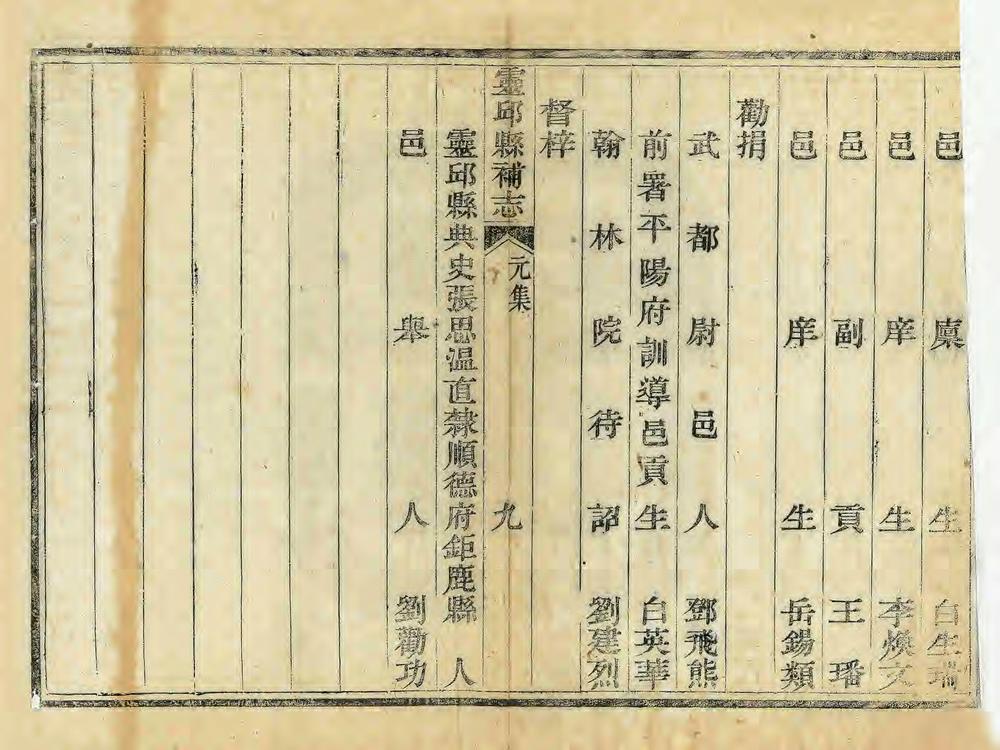 邑廩生白生瑞
邑庠生李煥文
邑副貢王璠
邑庠生岳錫類
勸捐
武都尉邑人鄧飛熊
前署平陽府訓導邑貢生白英華
翰林院待詔劉建烈
督梓
靈邱縣補志 元集 九
靈邱縣典史張思溫直隸順德府鉅鹿縣人
邑舉人劉勸功